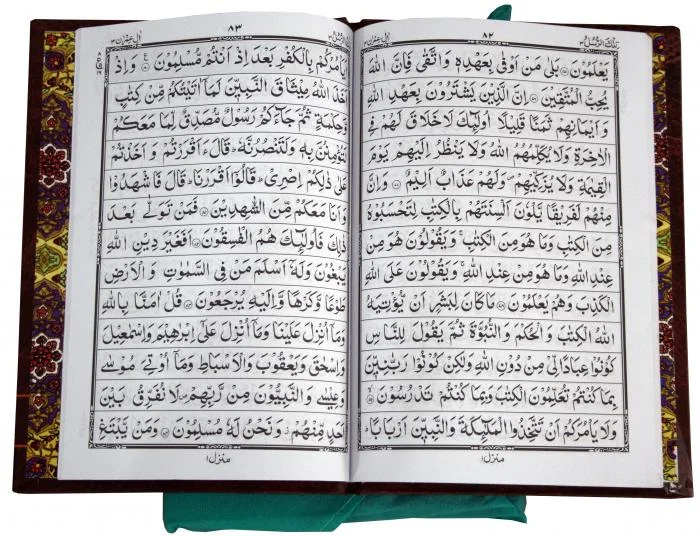 تِلْكَ الرُّسُلُ ۳ ۸۲ اٰلِ عِمْرٰن ۳
يَعْلَمُوْنَ ۝ بَلٰى مَنْ اَوْفٰى بِعَهْدِهٖ وَاتَّقٰى فَاِنَّ اللّٰهَ
يُحِبُّ الْمُتَّقِيْنَ ۝ اِنَّ الَّذِيْنَ يَشْتَرُوْنَ بِعَهْدِ اللّٰهِ
وَاَيْمَانِهِمْ ثَمَنًا قَلِيْلًا اُولٰٓئِكَ لَاخَلَاقَ لَهُمْ فِى
الْاٰخِرَةِ وَلَا يُكَلِّمُهُمُ اللّٰهُ وَلَا يَنْظُرُ اِلَيْهِمْ يَوْمَ
الْقِيٰمَةِ وَلَا يُزَكِّيْهِمْ وَلَهُمْ عَذَابٌ اَلِيْمٌ ۝ وَاِنَّ
مِنْهُمْ لَفَرِيْقًا يَّلْوٗنَ اَلْسِنَتَهُمْ بِالْكِتٰبِ لِتَحْسَبُوْهُ
مِنَ الْكِتٰبِ وَمَا هُوَمِنَ الْكِتٰبِ ۚ وَيَقُوْلُوْنَ هُوَمِنْ
عِنْدِ اللّٰهِ وَمَا هُوَمِنْ عِنْدِ اللّٰهِ ۚ وَيَقُوْلُوْنَ عَلَى اللّٰهِ
الْكَذِبَ وَهُمْ يَعْلَمُوْنَ ۝ مَا كَانَ لِبَشَرٍ اَنْ يُّؤْتِيَهُ
اللّٰهُ الْكِتٰبَ وَالْحُكْمَ وَالنُّبُوَّةَ ثُمَّ يَقُوْلَ لِلنَّاسِ
كُوْنُوْا عِبَادًا لِّىْ مِنْ دُوْنِ اللّٰهِ وَلٰكِنْ كُوْنُوْا رَبّٰنِيّٖنَ
بِمَا كُنْتُمْ تُعَلِّمُوْنَ الْكِتٰبَ وَبِمَا كُنْتُمْ تَدْرُسُوْنَ ۝
وَلَا يَاْمُرَكُمْ اَنْ تَتَّخِذُوا الْمَلٰٓئِكَةَ وَالنَّبِيّٖنَ اَرْبَابًا ؕ
منزل ۱
۸۳ اٰلِ عِمْرٰن ۳
اَيَاْمُرُكُمْ بِالْكُفْرِ بَعْدَ اِذْ اَنْتُمْ مُّسْلِمُوْنَ ۝ وَاِذْ
اَخَذَ اللّٰهُ مِيْثَاقَ النَّبِيّٖنَ لَمَآ اٰتَيْتُكُمْ مِّنْ كِتٰبٍ
وَّحِكْمَةٍ ثُمَّ جَآءَكُمْ رَسُوْلٌ مُّصَدِّقٌ لِّمَا مَعَكُمْ
لَتُؤْمِنُنَّ بِهٖ وَلَتَنْصُرُنَّهٗ ؕ قَالَ ءَاَقْرَرْتُمْ وَاَخَذْتُمْ
عَلٰى ذٰلِكُمْ اِصْرِىْ ؕ قَالُوْٓا اَقْرَرْنَا ؕ قَالَ فَاشْهَدُوْا
وَاَنَا مَعَكُمْ مِّنَ الشّٰهِدِيْنَ ۝ فَمَنْ تَوَلّٰى بَعْدَ
ذٰلِكَ فَاُولٰٓئِكَ هُمُ الْفٰسِقُوْنَ ۝ اَفَغَيْرَ دِيْنِ اللّٰهِ
يَبْغُوْنَ وَلَهٗٓ اَسْلَمَ مَنْ فِى السَّمٰوٰتِ وَالْاَرْضِ
طَوْعًا وَّكَرْهًا وَّاِلَيْهِ يُرْجَعُوْنَ ۝ قُلْ اٰمَنَّا بِاللّٰهِ
وَمَآ اُنْزِلَ عَلَيْنَا وَمَآ اُنْزِلَ عَلٰٓى اِبْرٰهِيْمَ وَاِسْمٰعِيْلَ
وَاِسْحٰقَ وَيَعْقُوْبَ وَالْاَسْبَاطِ وَمَآ اُوْتِىَ مُوْسٰى
وَعِيْسٰى وَالنَّبِيُّوْنَ مِنْ رَّبِّهِمْ ۪ لَا نُفَرِّقُ بَيْنَ
اَحَدٍ مِّنْهُمْ ؗ وَنَحْنُ لَهٗ مُسْلِمُوْنَ ۝ وَمَنْ يَّبْتَغِ
منزل ۱